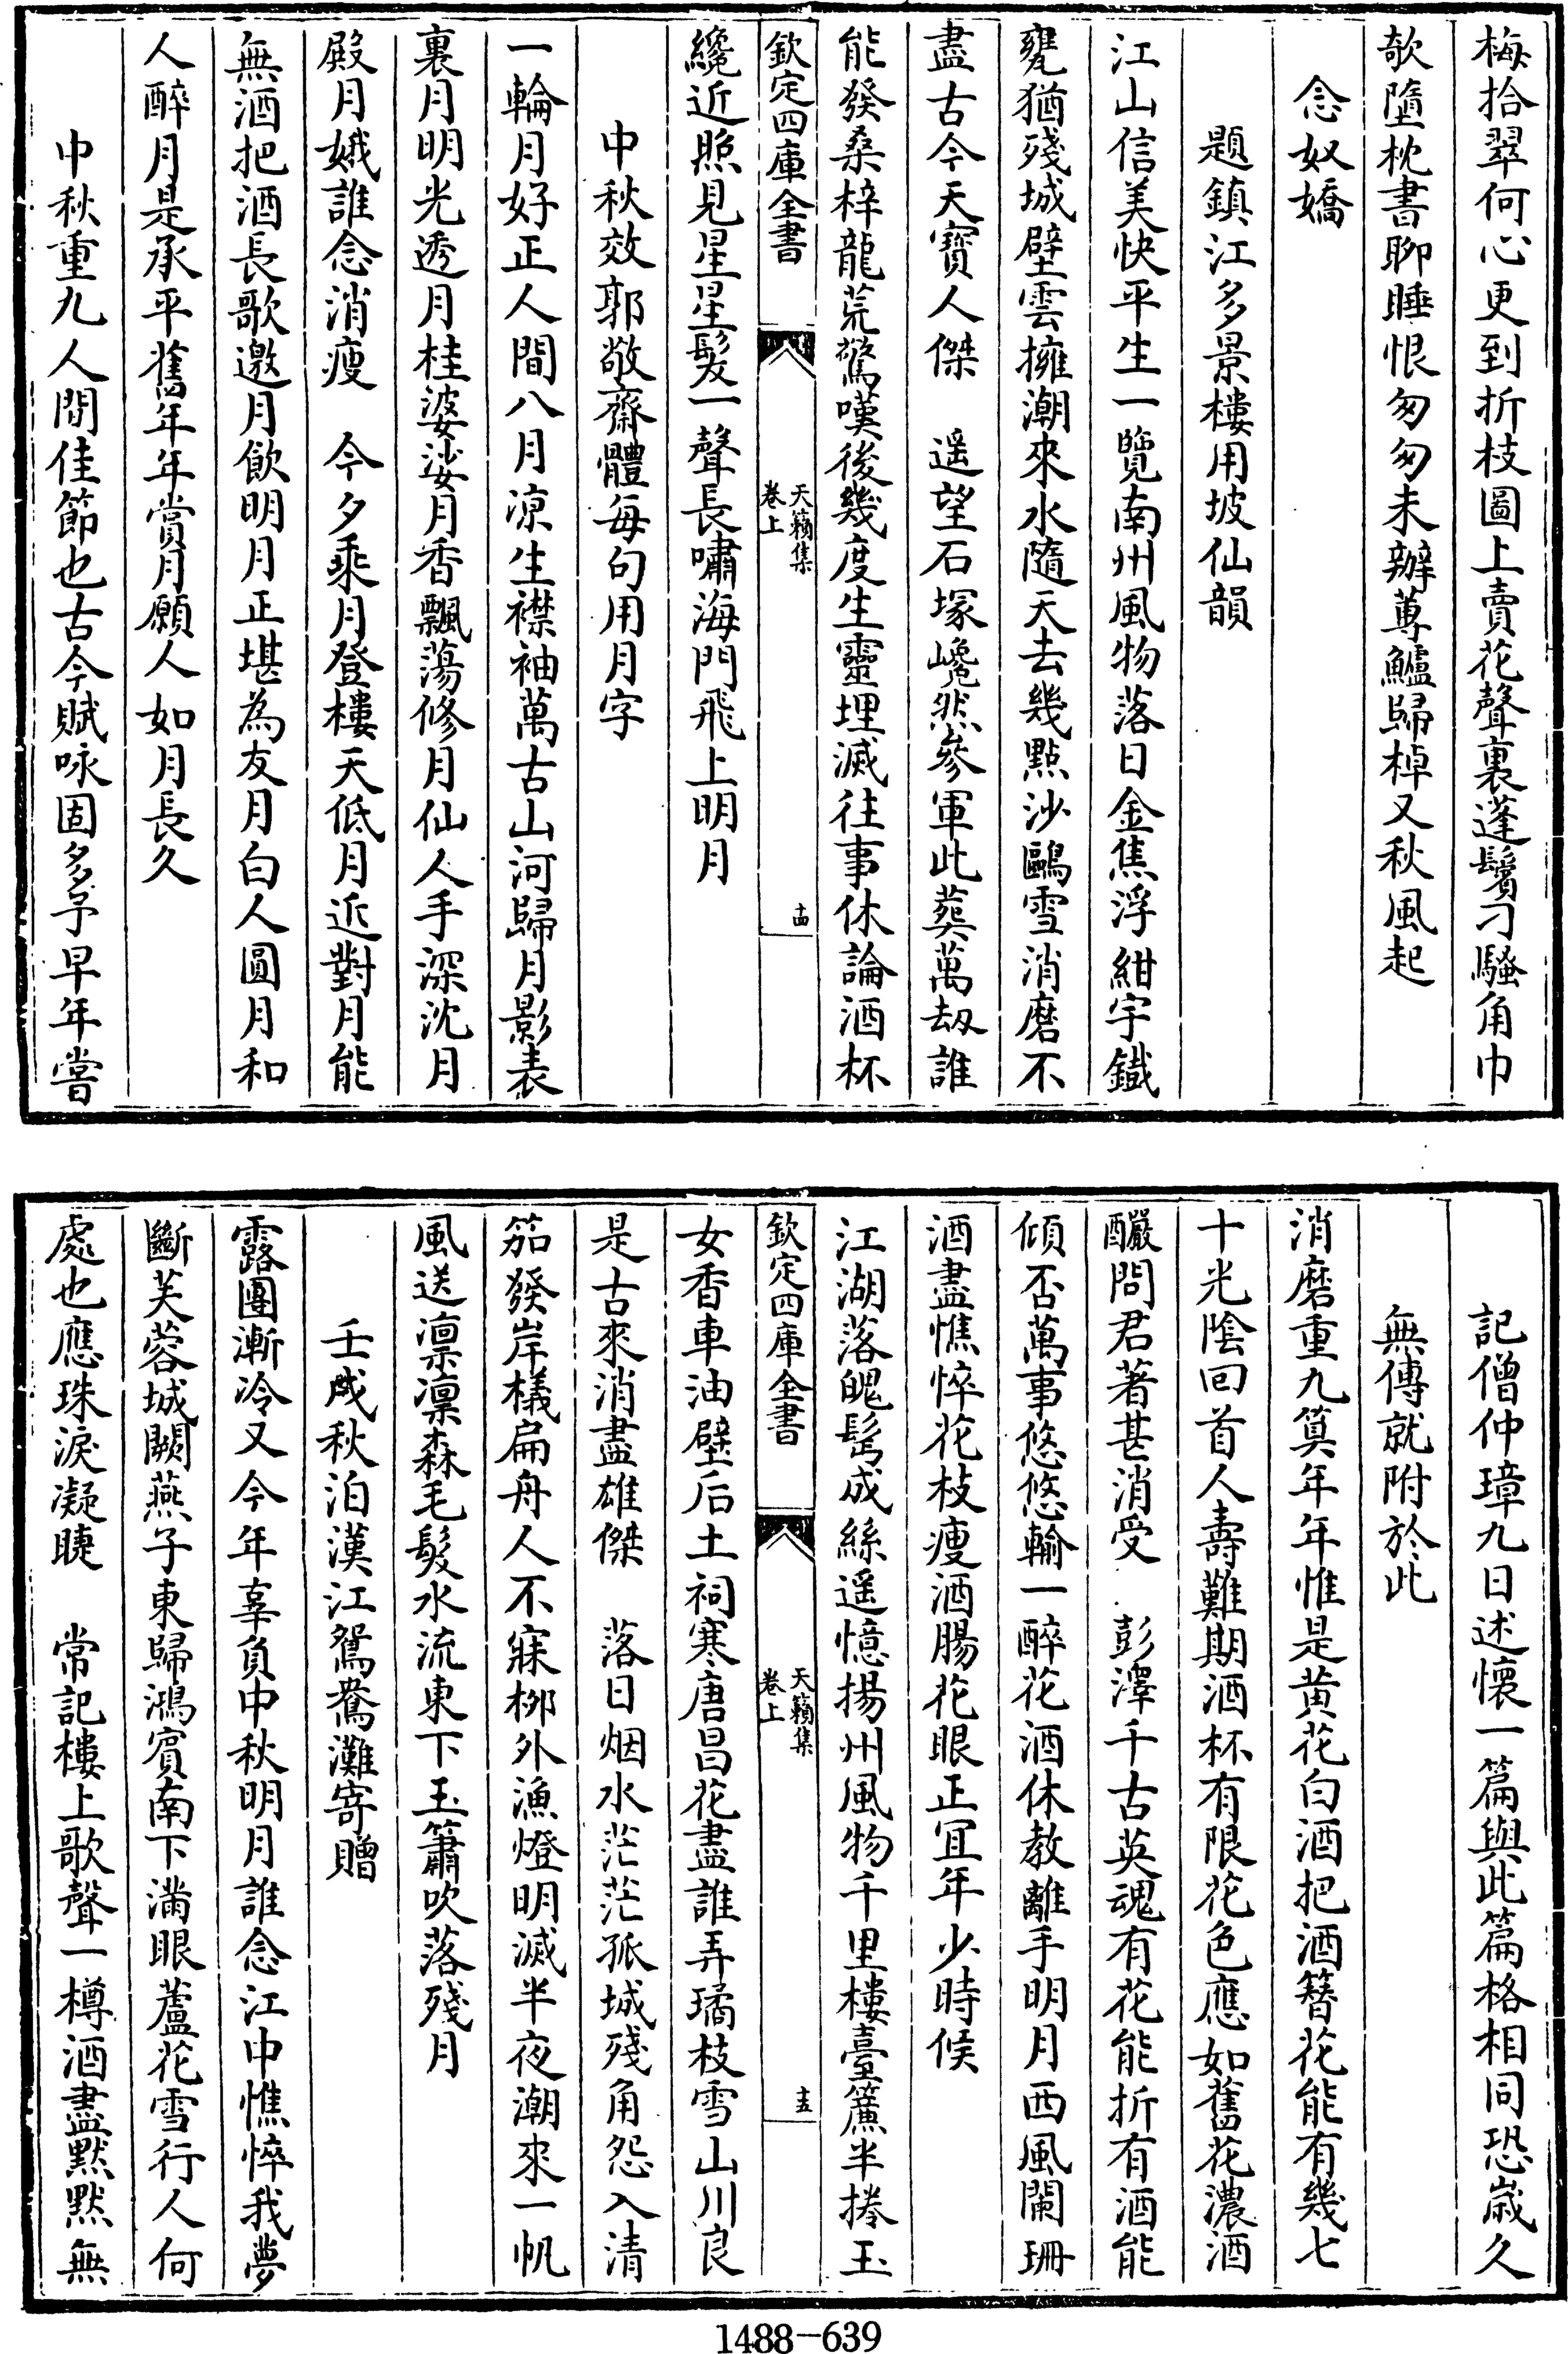 梅拾翠何心更到折枝圖上賣花聲裏蓬鬢刁騷角巾
欹墮枕書聊睡恨匆匆未辦蓴鱸歸棹又秋風起
念奴嬌
題鎮江多景樓用坡仙韻
江山信美快平生一覽南州風物落日金焦浮紺宇鐵
甕猶殘城壁雲擁潮來水隨天去幾點沙鷗雪消磨不
盡古今天寶人傑　遥望石塚巉然參軍此葬萬劫誰
能發桑梓龍荒驚嘆後幾度生靈埋滅往事休論酒杯
欽定四庫全書
天籟集
卷上
十四
纔近照見星星髮一聲長嘯海門飛上明月
中秋效郭敬齋體每句用月字
一輪月好正人間八月凉生襟袖萬古山河歸月影表
裏月明光透月桂婆娑月香飄蕩修月仙人手深沈月
殿月娥誰念消瘦　今夕乘月登樓天低月近對月能
無酒把酒長歌邀月飲明月正堪為友月白人圓月和
人醉月是承平舊年年賞月願人如月長久
中秋重九人間佳節也古今賦咏固多予早年嘗
記僧仲璋九日述懷一篇與此篇格相同恐歲久
無傳就附於此
消磨重九算年年惟是黄花白酒把酒簪花能有幾七
十光陰回首人壽難期酒杯有限花色應如舊花濃酒
釅問君著甚消受　彭澤千古英魂有花能折有酒能
傾否萬事悠悠輸一醉花酒休教離手明月西風闌珊
酒盡憔悴花枝瘦酒腸花眼正宜年少時候
江湖落魄鬂成絲遥憶揚州風物千里樓臺簾半捲玉
欽定四庫全書
天籟集
卷上
十五
女香車油壁后土祠寒唐昌花盡誰弄璚枝雪山川良
是古來消盡雄傑　落日烟水茫茫孤城殘角怨入清
笳發岸檥扁舟人不寐柳外漁燈明滅半夜潮來一帆
風送凛凛森毛髮水流東下玉簫吹落殘月
壬戌秋泊漢江鴛鴦灘寄贈
露團漸冷又今年辜負中秋明月誰念江中憔悴我夢
斷芙蓉城闕燕子東歸鴻賓南下滿眼蘆花雪行人何
處也應珠淚凝睫　常記樓上歌聲一樽酒盡黙黙無
1488—639